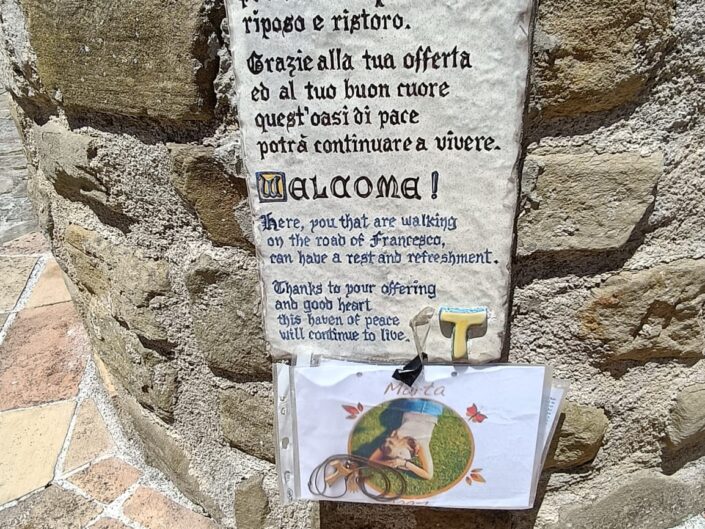 riposo e ristoro.
Grazie alla tua offerta
ed al tuo buon cuore
quest'oasi di pace
potrà continuare a vivere.
WELCOME!
Here, you that are walking
on the road of Francesco,
can have a rest and refreshment.
Thanks to your offering
and good heart
this haven of peace
will continue to live.
Marta